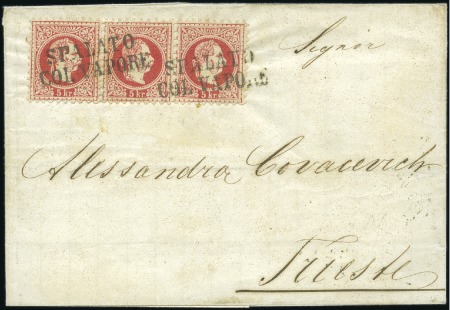 SPALATO
COL VAPORE
SPALATO
COL VAPORE
5 kr. 5 kr. 5 kr.
Signor
Alessandro Covacevich
Trieste